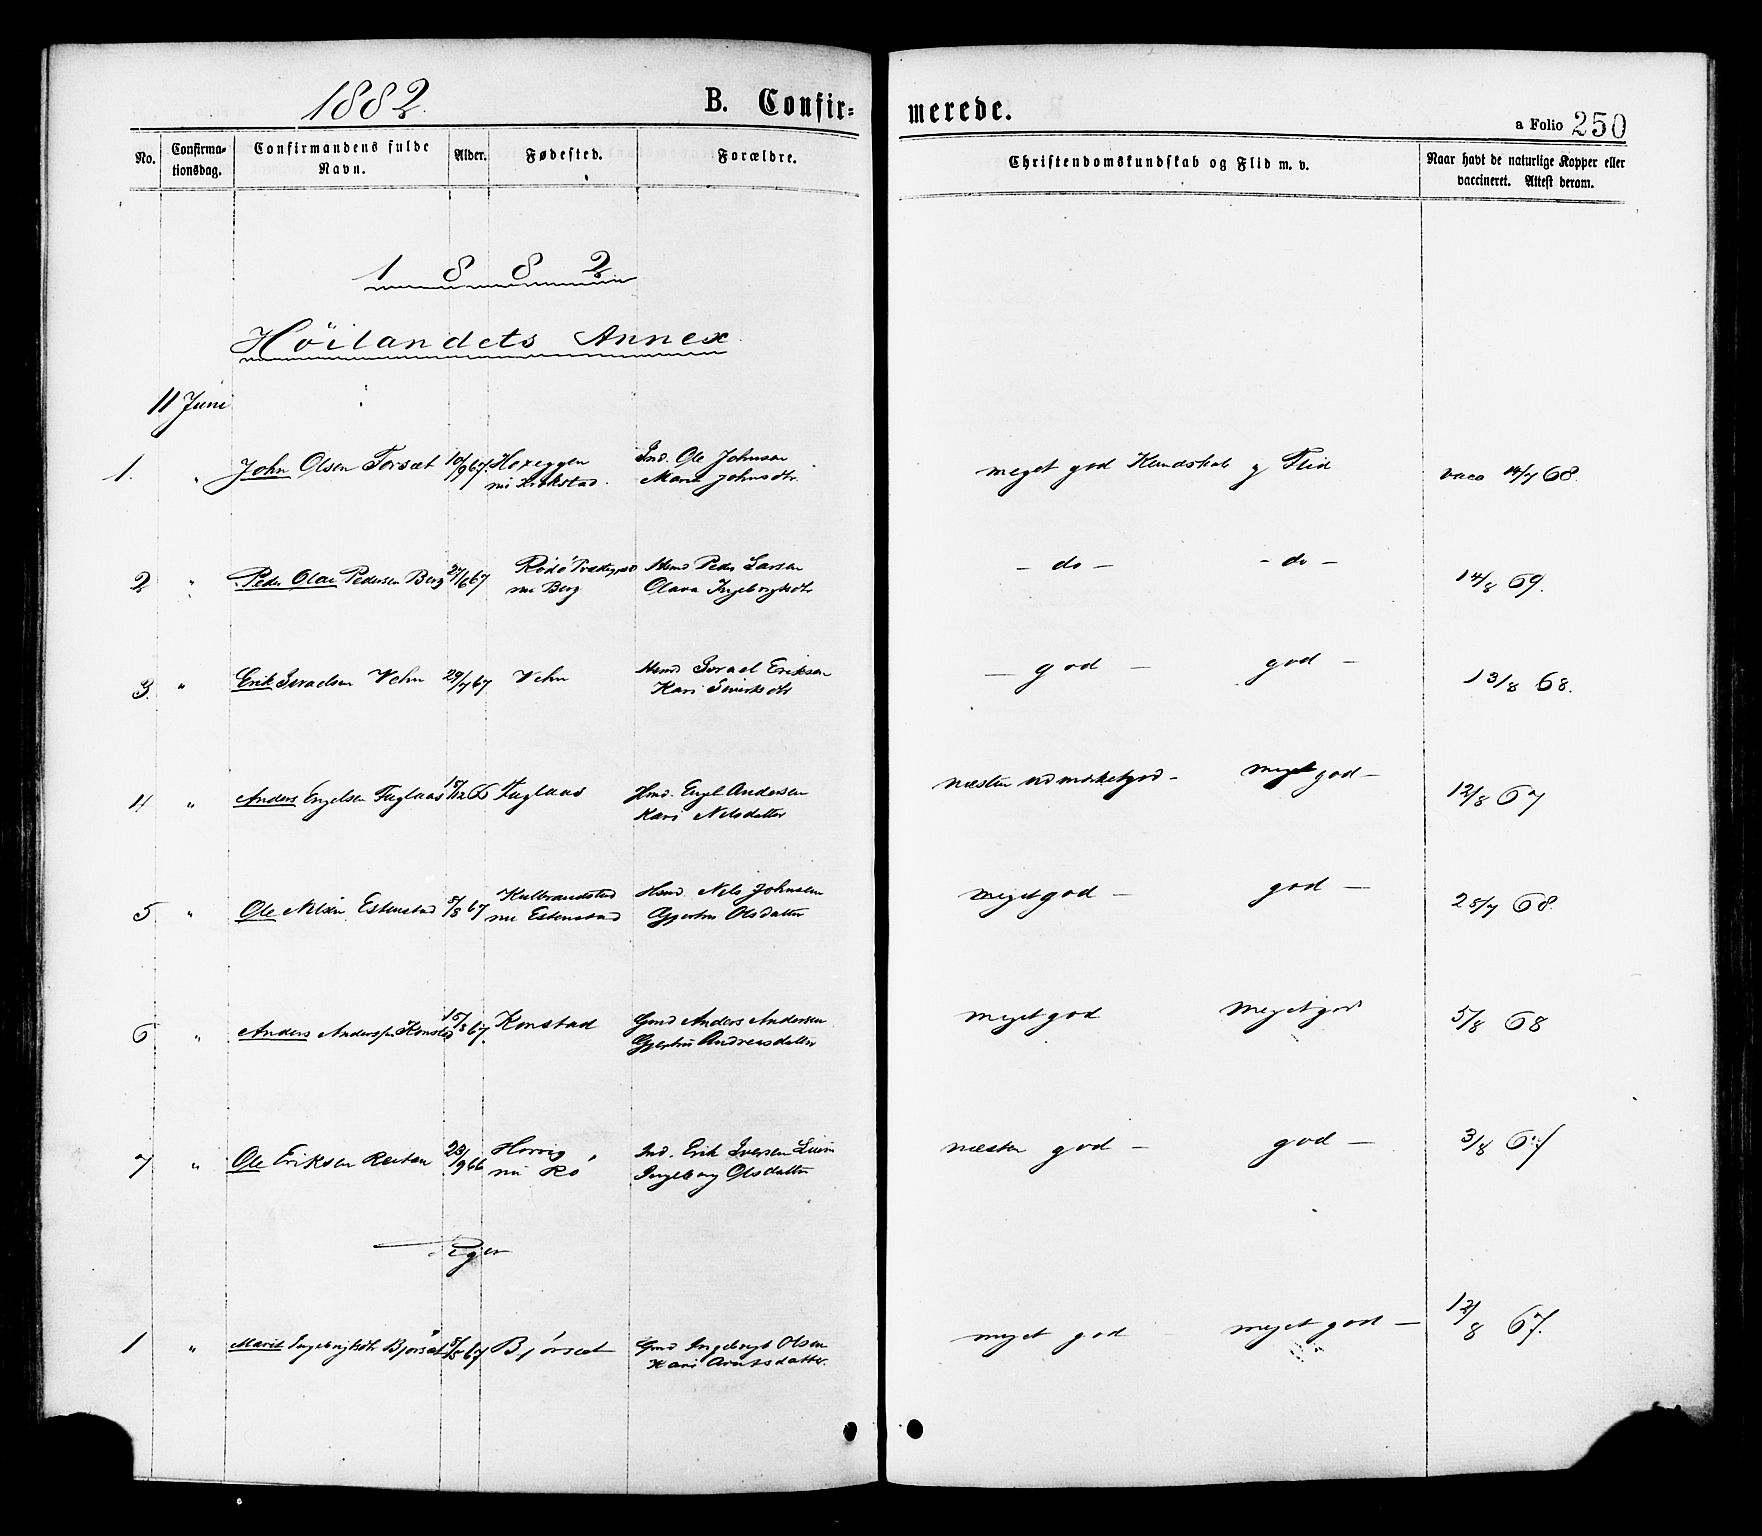 1882.
B. Confir=
merede.
a Folio 250
No.
Confirma-
tionsdag.
Confirmandens fulde
Navn.
Alder.
Fødested.
Forældre.
Christendomskundskab og Flid m. v.
Naar havt de naturlige Kopper eller
vaccineret. Attest derom.
1 8 8 2
Höilandets Annex
11 Juni
1. " John Olsen Forsæt 10/9 67. Hoxeggen Ind. Ole Johnsen meget god Kundskab og Flid vacc 14/7 68.
nu Krokstad. Marit Johnsdtr.
2 " Peder Olai Pedersen Berg 27/6 67 Rödö Hmd Peder Larsen – do – – do – 14/8 69.
nu Berg Olava Ingebrigtsdtr
3. " Erik Israelsen Vehn 29/7 67 Vehn Hmd Israel Eriksen – god – god – 13/8 68.
Kari Sivertsdtr
4 " Anders Engelsen Fuglaas 15/12 66 Fuglaas Hmd. Engel Andersen næsten udmærketgod – meget god – 12/8 67
Kari Nelsdatter
5 " Ole Nelsen Estenstad 5/8 67 Kulbrandstad Hmd Nels Johnsen meget god – god – 25/7 68.
nu Estenstad Gjertru Olsdatter
6 " Anders Anderssen Konstad 15/8 67. Konstad Gmd Anders Andersen meget god meget god 5/8 68
Gjertru Andreasdatter
7 " Ole Eriksen Reitan 23/9 66 Horvig Ind. Erik Iversen næsten god – god – 3/8 67
nu Rö Ingeborg Olsdatter
Piger
1 " Marit Ingebrigtsdtr Bjørsæt 5/5 67 Bjørsæt Gmd Ingebrigt Olsen meget god – meget god – 12/8 67.
Kari Arntsdatter.